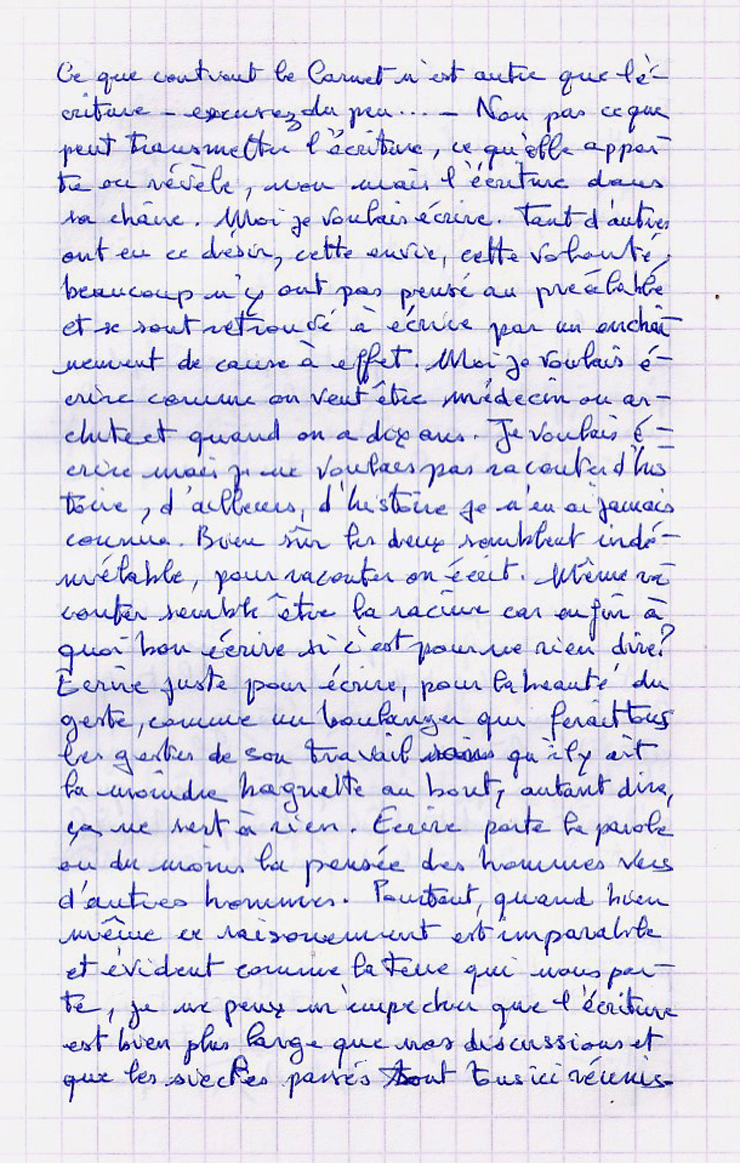 Ce que contient le Carnet n'est autre que l'é-
criture – excusez du peu... – Non pas ce que
peut transmettre l'écriture, ce qu'elle appor
te ou révèle, non mais l'écriture dans
sa chaire. Moi je voulais écrire. Tant d'autres
ont eu ce désir, cette envie, cette volonté,
beaucoup n'y ont pas pensé au préalable
et se sont retrouvé à écrire par un enchaî
nement de cause à effet. Moi je voulais é-
crire comme on veut être médecin ou ar-
chitecte quand on a dix ans. Je voulais é-
crire mais je ne voulais pas raconter d'his
toire, d'ailleurs, d'histoire je n'en ai jamais
connue. Bien sûr les deux semblent indé-
mélable, pour raconter on écrit. Même ra
conter semble être la racine car enfin à
quoi bon écrire si c'est pour ne rien dire?
Ecrire juste pour écrire, pour la beauté du
geste, comme un boulanger qui ferait tous
les gestes de son travail sans qu'il y ait
la moindre baguette au bout, autant dire,
ça ne sert à rien. Ecrire porte la parole
ou du moins la pensée des hommes vers
d'autres hommes. Pourtant, quand bien
même ce raisonnement est imparable
et évident comme la Terre qui nous por-
te, je ne peux m'empecher que l'écriture
est bien plus large que nos discussions et
que les siecles passés sont tous ici réunis.